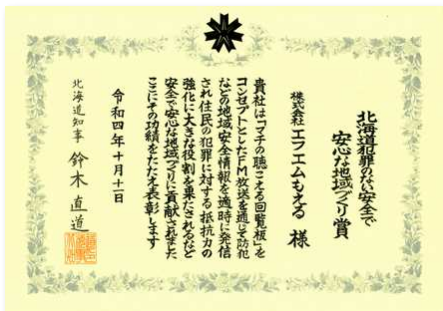 北海道犯罪のない安全で
安心な地域づくり賞
株式会社 エフエムもえる 様
貴社は「マチの聴こえる回覧板」を
コンセプトとしたFM放送を通じて防犯
などの地域安全情報を適時に発信
され住民の犯罪に対する抵抗力の
強化に大きな役割を果たされるなど
安全で安心な地域づくりに貢献されました
ここにその功績をたたえ表彰します
令和四年十月十二日
北海道知事 鈴木直道